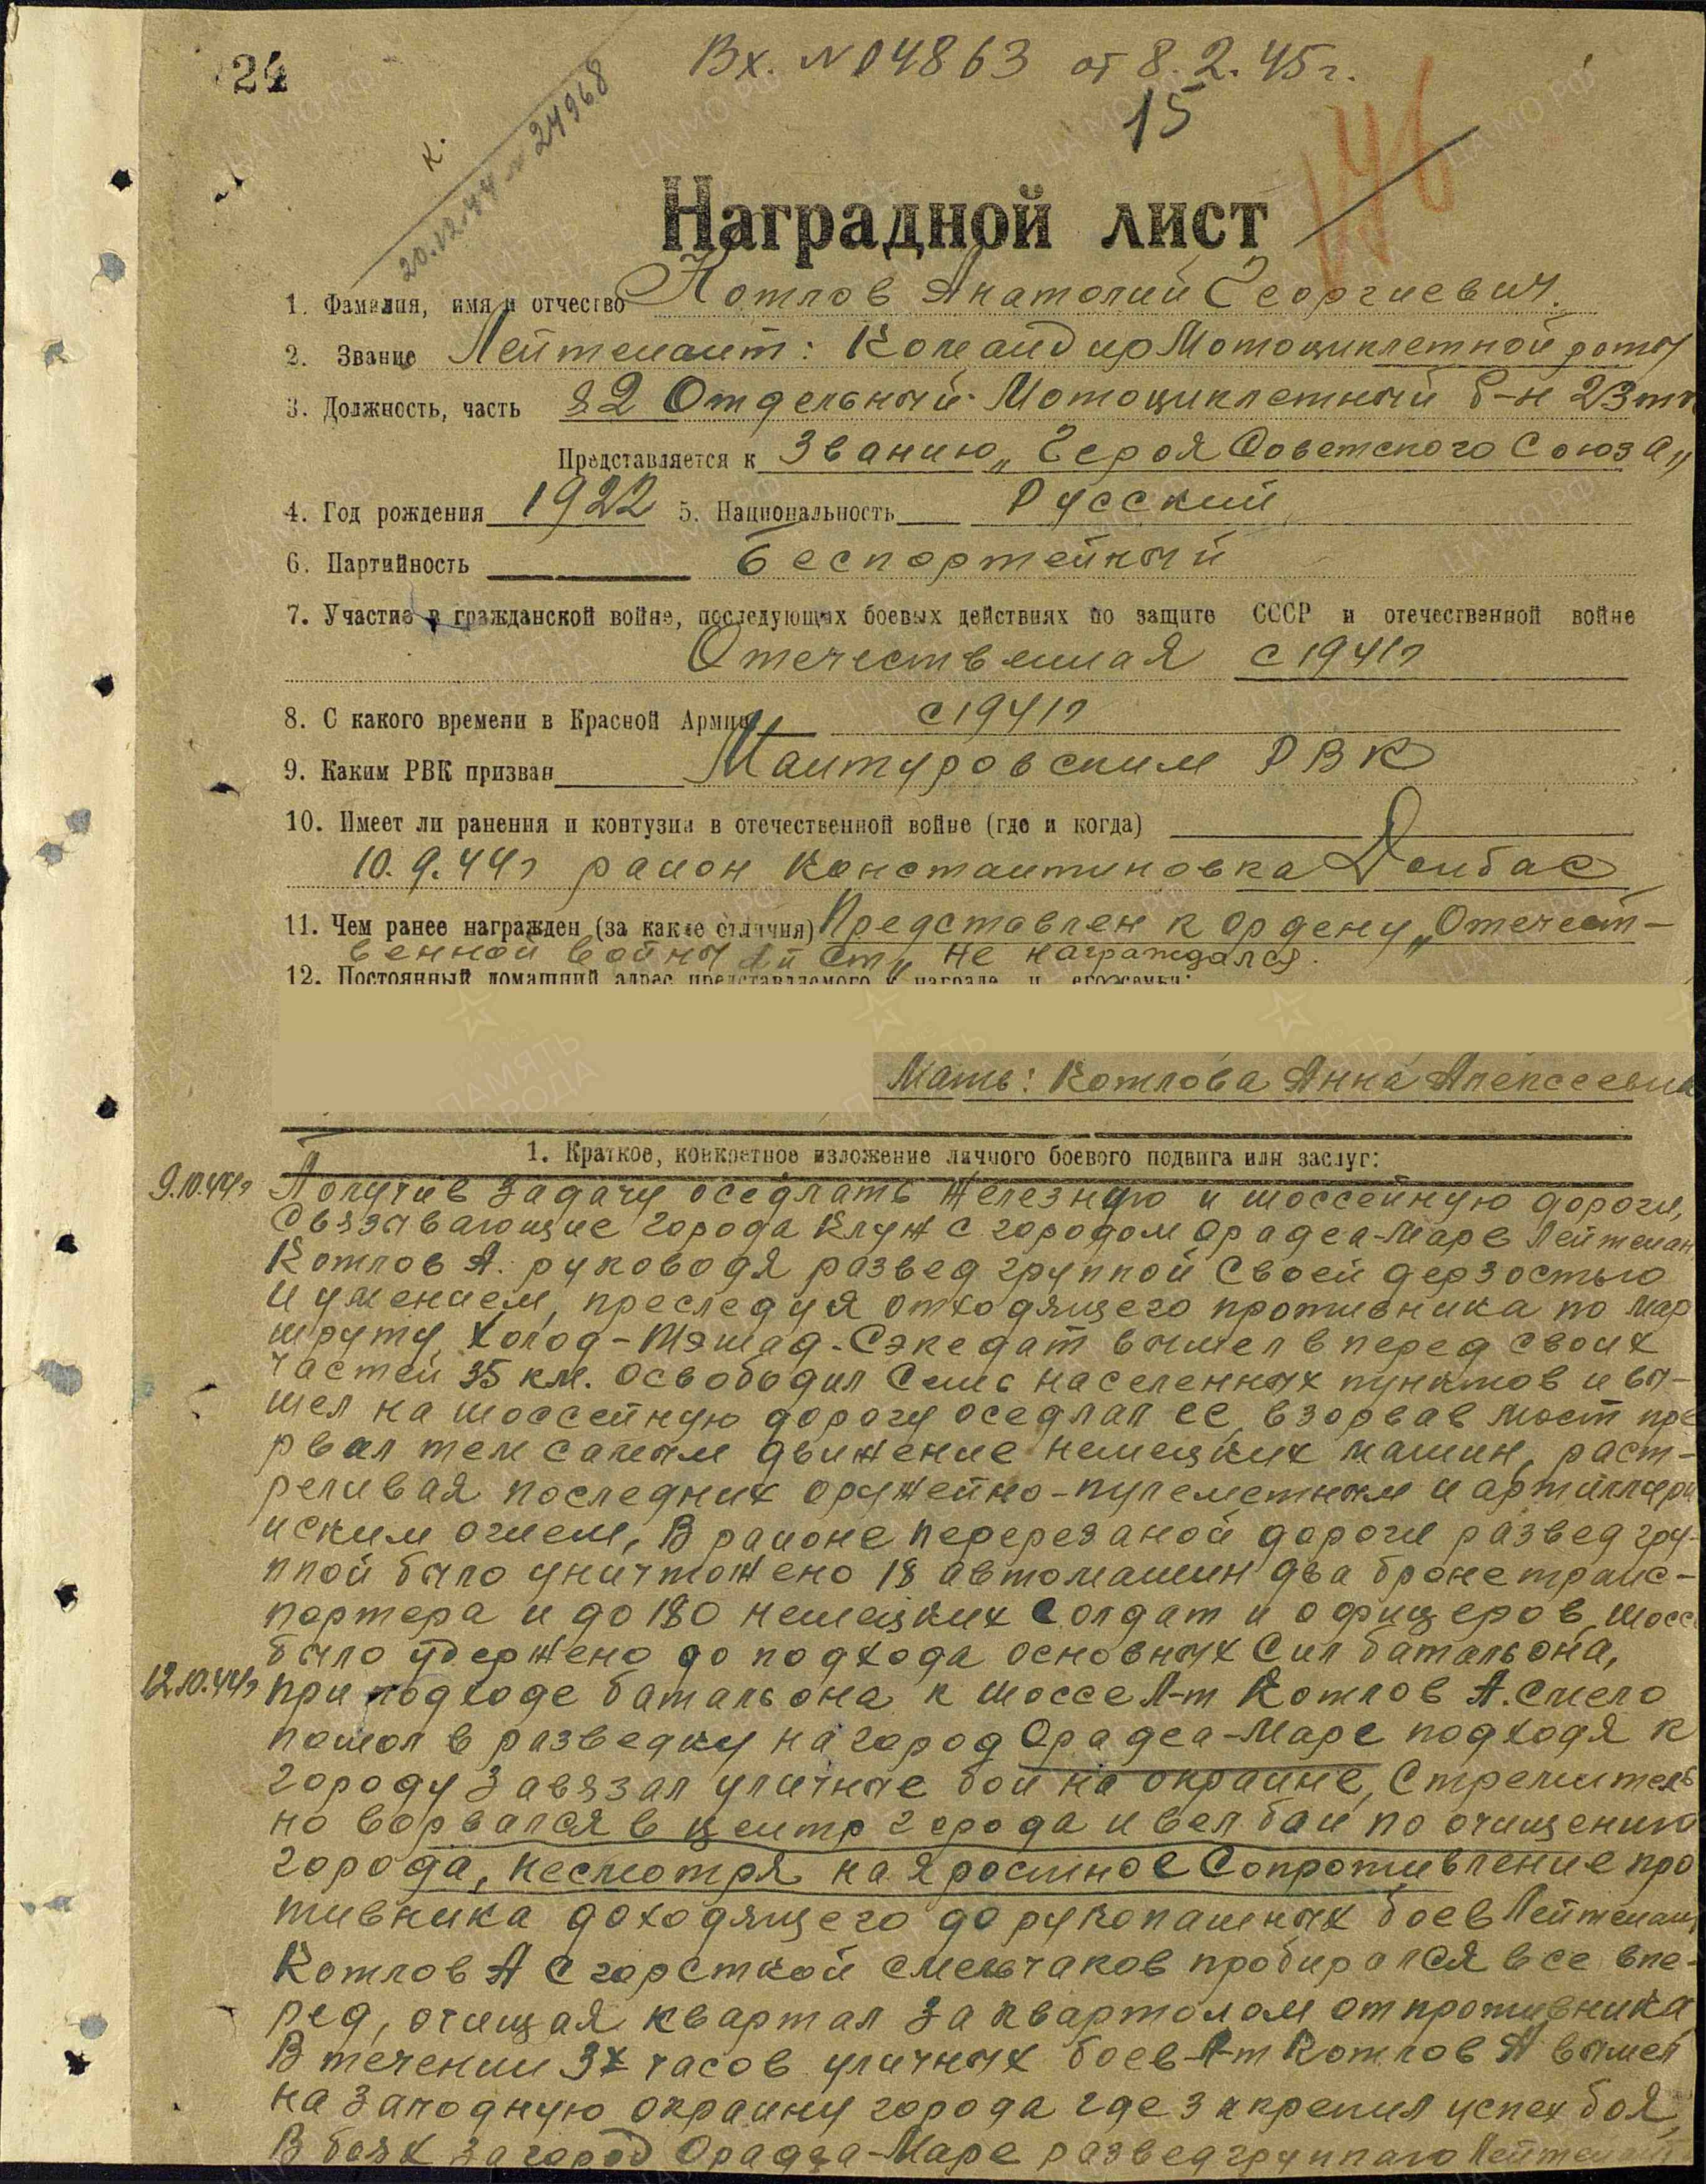 24
Вх. № 04863 от 8.2.45г.
15
К.
20.12.44 № 24968
146
Наградной лист
1. Фамилия, имя и отчество Котлов Анатолий Георгиевич.
2. Звание Лейтенант: Командир Мотоциклетной роты
3. Должность, часть 82 Отдельный Мотоциклетный б-н 23тк
Представляется к Званию „Героя Советского Союза"
4. Год рождения 1922 5. Национальность Русский
6. Партийность беспортейный
7. Участие в гражданской войне, последующих боевых действиях по защите СССР и отечественной войне
Отечественная с 1941г
8. С какого времени в Красной Армии с 1941г
9. Каким РВК призван Мантуровским РВК
10. Имеет ли ранения и контузии в отечественной войне (где и когда)
10.9.44г район Константиновка Донбас
11. Чем ранее награжден (за какие отличия) Представлен к ордену „Отечест-
венной войны II ст" не награждался.
12. Постоянный домашний адрес представляемого к награде и его семьи:
Мать: Котлова Анна Алексеевна
1. Краткое, конкретное изложение личного боевого подвига или заслуг:
9.10.44г Получив задачу оседлать железную и шоссейную дороги,
связзывающие города Клуж с городом Орадеа-Маре Лейтенан
Котлов А. руководя развед группой своей дерзостью
и умением, преследуя отходящего противника по мар
шруту, Холод-Тэшад-Сэкедат вышел в перед своих
частей 35 км. Освободил семь населенных пунктов и вы-
шел на шоссейную дорогу оседлал ее, взорвав мост пре
рвал тем самым движение немецких машин, раст-
реливая последних оружейно-пулеметным и артиллери
иским огнем, В районе перерезаной дороги развед гру-
ппой было уничтожено 18 автомашин два бронетранс-
портера и до 180 немецких солдат и офицеров, шосс
было удержено до подхода основных сил батальона,
12.10.44г при подходе батальона к шоссе Л-т Котлов А. смело
пошол в разведку на город Орадеа-Маре подходя к
городу завязал уличные бои на окраине, стремитель
но ворвался в центр города и вел баи по очищению
города, несмотря на яростное сопротивление про
тивника доходящего до рукопашных боев Лейтенант
Котлов А с горсткой смельчаков пробирался все впе-
ред, очищая квартал за кварталом от противника
В течении 3х часов уличных боев Л-т Котлов А вышел
на западную окраину города где закрепил успех боя,
В боях за город Орадеа-Маре развед группаю Лейтенант